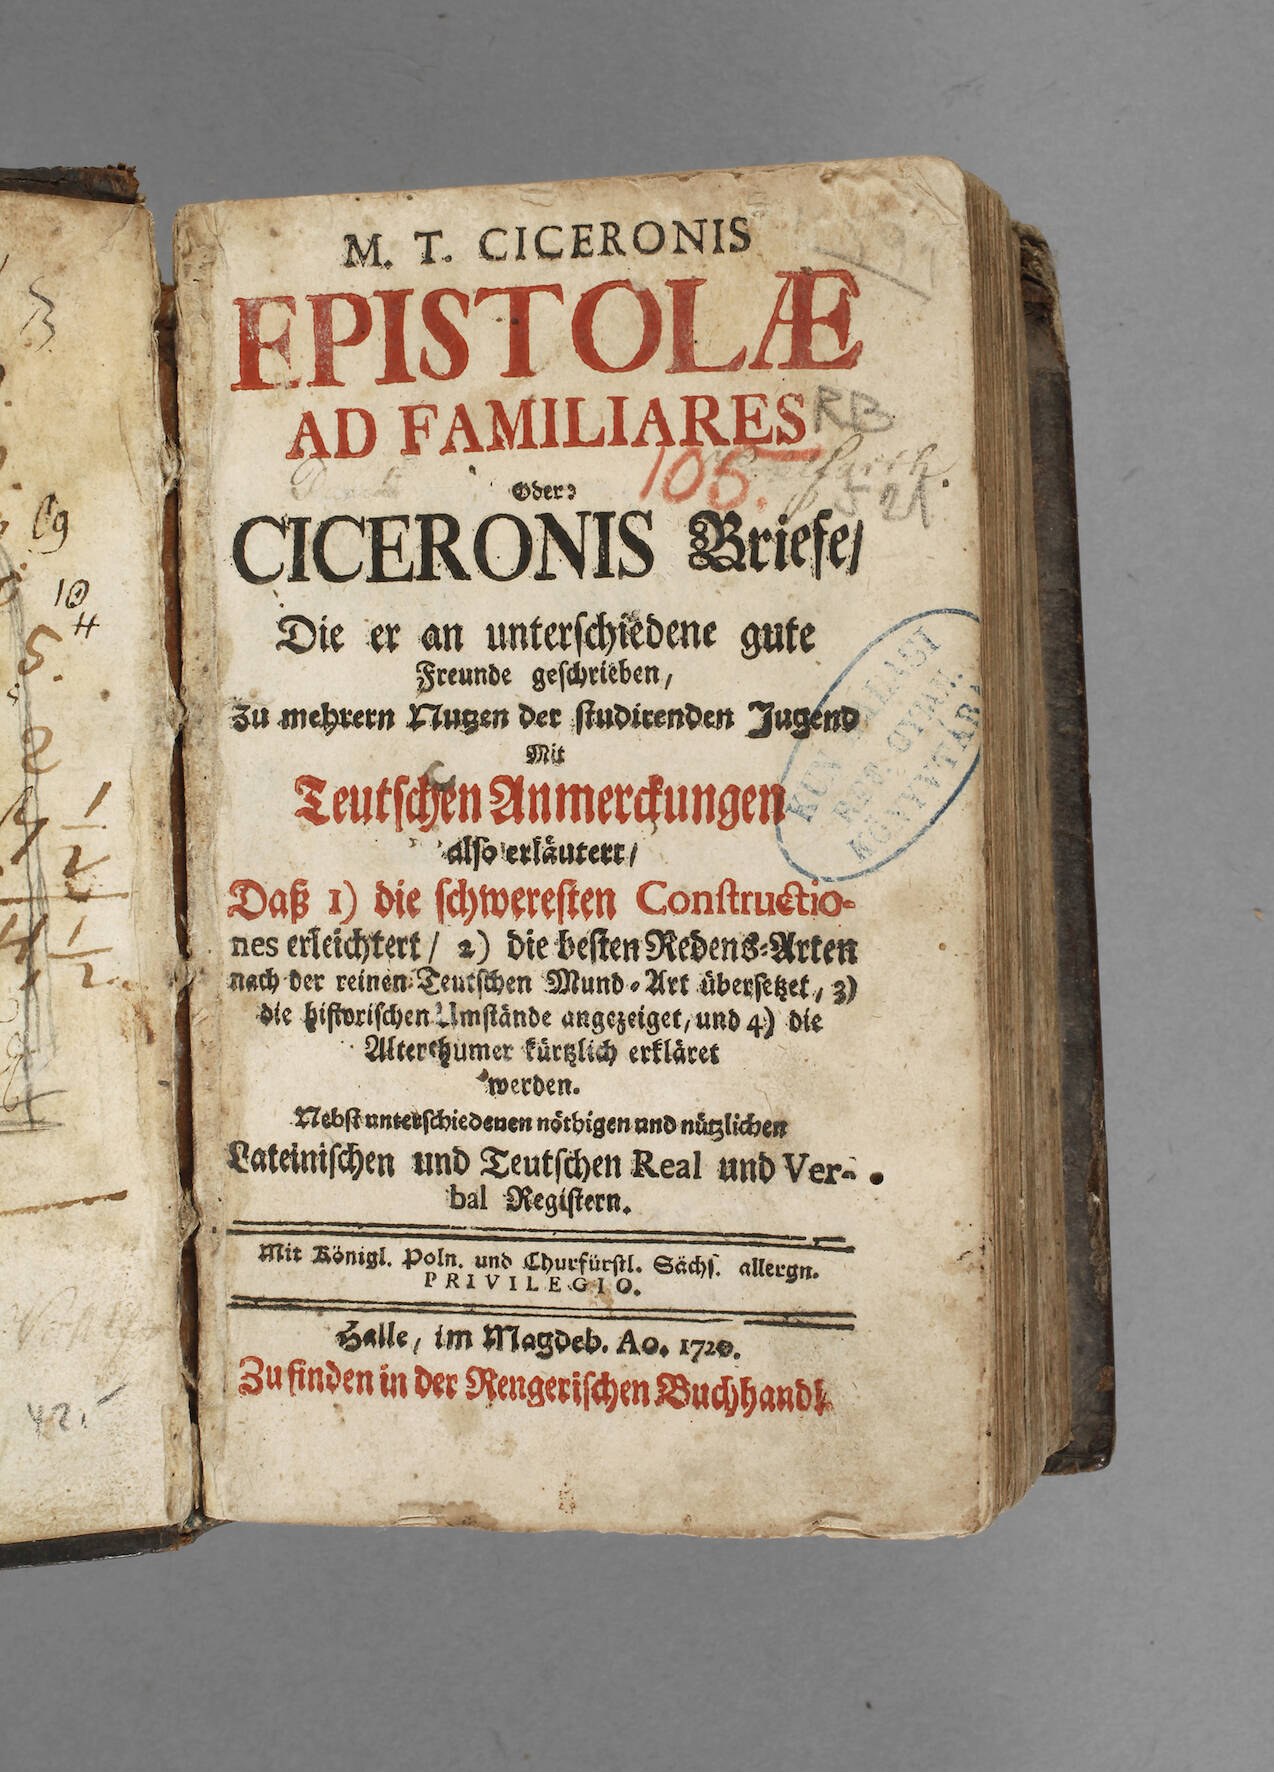 M. T. CICERONIS
EPISTOLÆ
AD FAMILIARES
RB
105.
521
Oder:
CICERONIS Briefe/
Die er an unterschiedene gute
Freunde geschrieben,
Zu mehrern Nutzen der studirenden Jugend
Mit
Teutschen Anmerckungen
also erläutert/
Daß 1) die schweresten Constructio-
nes erleichtert/ 2) die besten Redens-Arten
nach der reinen Teutschen Mund-Art übersetzet, 3)
die historischen Umstände angezeiget, und 4) die
Alterthumer kürtzlich erkläret
werden.
Nebst unterschiedenen nöthigen und nützlichen
Lateinischen und Teutschen Real und Ver-
bal Registern.
Mit Königl. Poln. und Churfürstl. Sächs. allergn.
PRIVILEGIO.
Halle, im Magdeb. Ao. 1720.
Zu finden in der Rengerischen Buchhandl.
REF. GYMN.
KÖNYVTÁRA
3
69
10
4
5.
2
1
2
1
2
42.